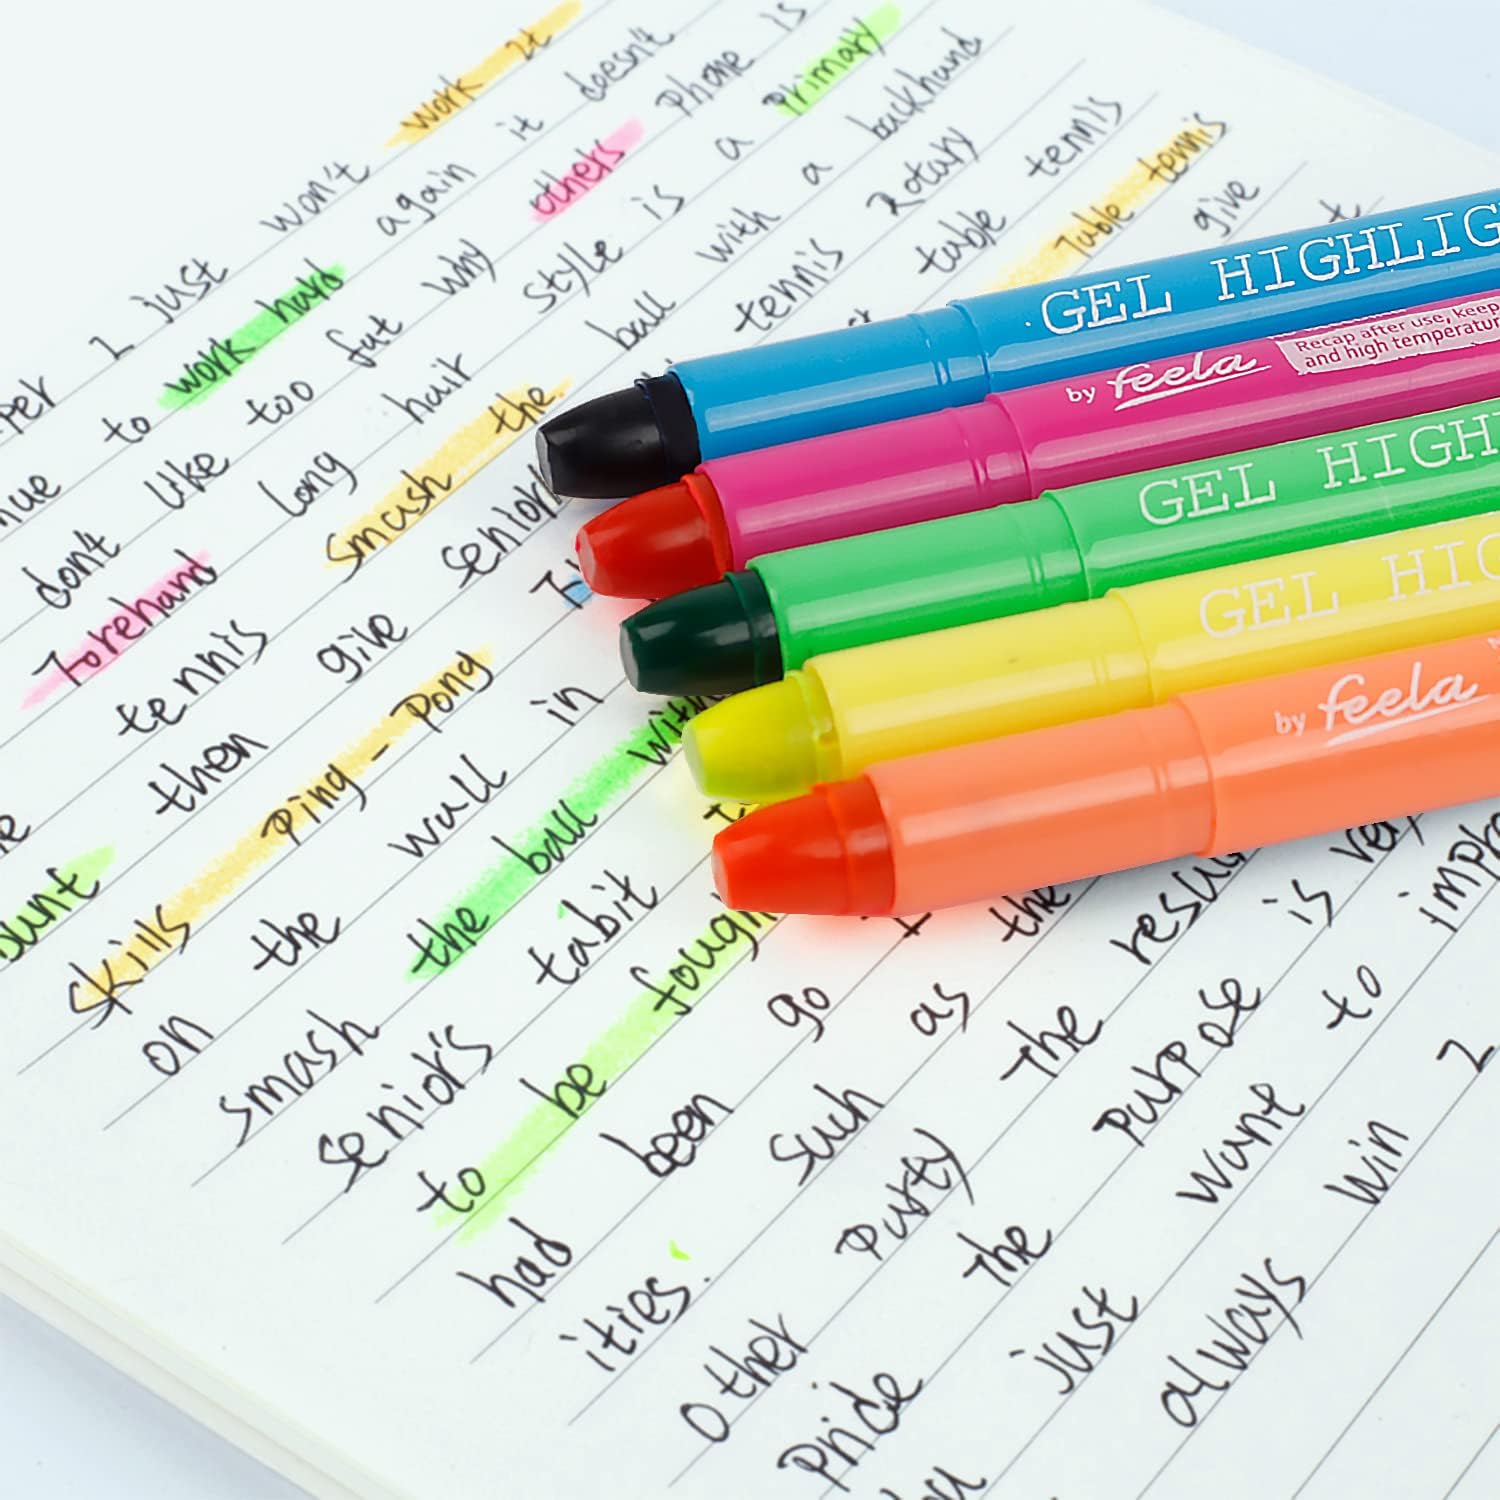 per I just won't work It
nue to work hard again it doesn't
don't like too fut why others phone is
Forehand long hair style is a primary
e tennis smash the ball with a backhand
ount then give senior tennis rotary
skills ping - pong table tennis
on the wall in Table tennis
smash the ball with give
senior's tabit
to be fough
had been go I
ities. such as the
other party the resu
pride the purpose is very
just want to impro
always win I
GEL HIGHLIG
by feela
Recap after use, keep
and high temperatur
GEL HIGH
GEL HIG
by feela